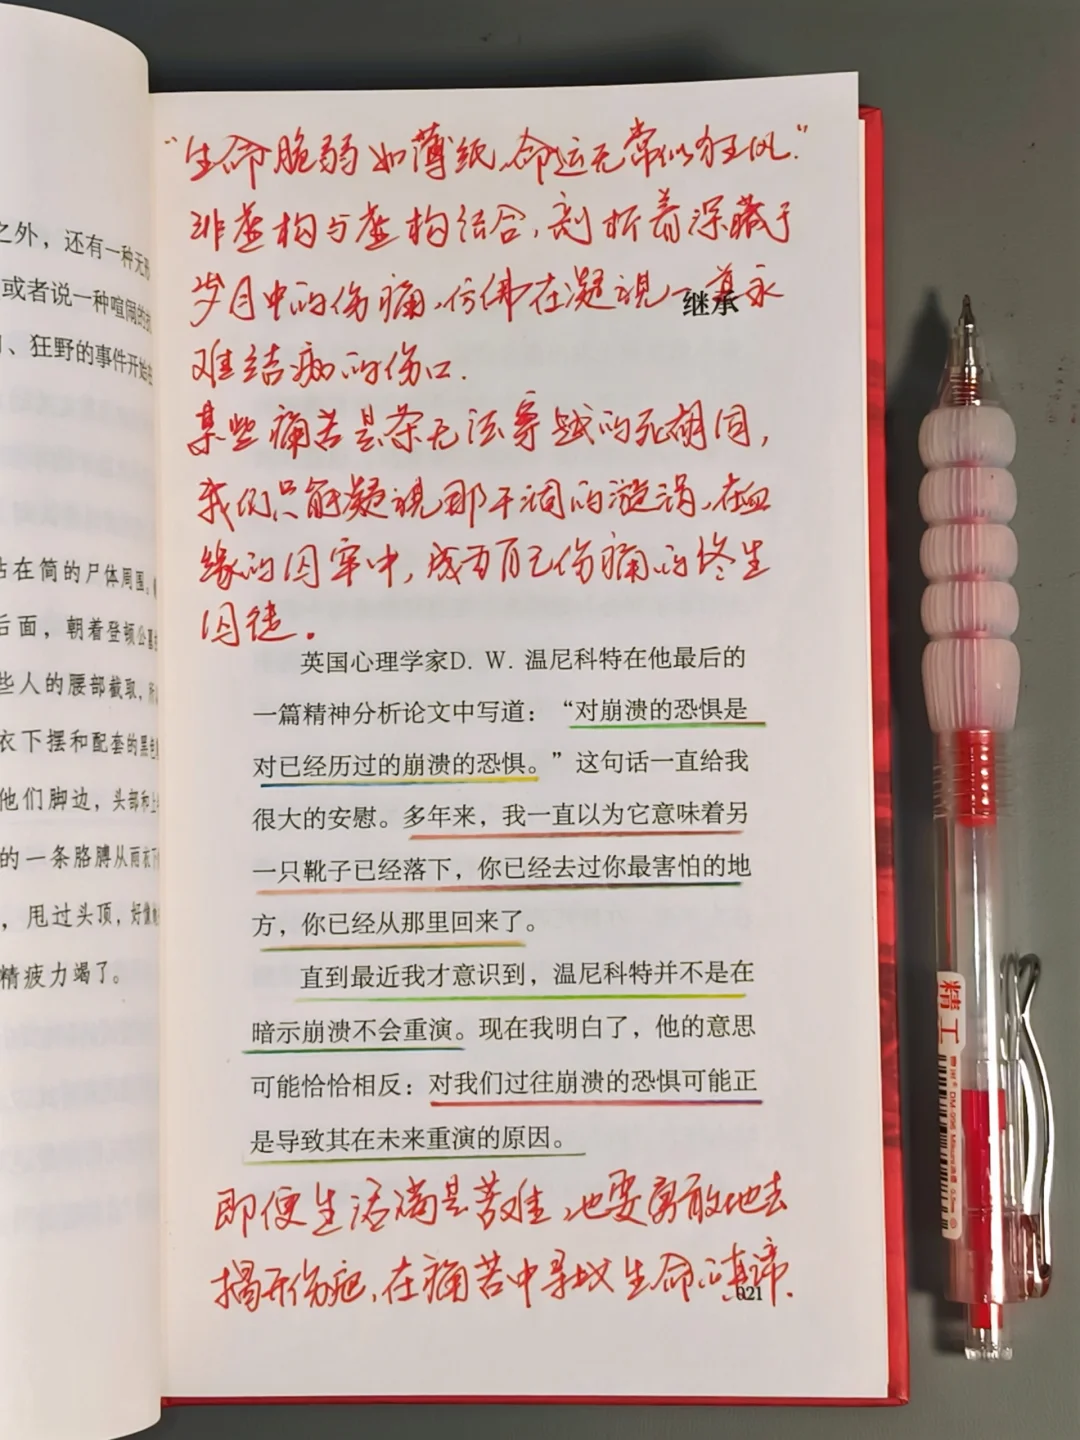 之外，还有一种无形
或者说一种喧闹的
、狂野的事件开始在
站在简的尸体周围。
后面，朝着登顿公墓
些人的腰部截取，所
衣下摆和配套的黑色
他们脚边，头部和上
的一条胳膊从雨衣下
，甩过头顶，好像
精疲力竭了。
“生命脆弱如薄纸，命运无常似狂风.”
非虚构与虚构结合，剖析着深藏于
岁月中的伤痛，仿佛在凝视一幕永
继承
难结痂的伤口.
某些痛苦是条无法穿越的死胡同，
我们只能凝视那干涸的漩涡，在血
缘的囚牢中，成为自己伤痛的终生
囚徒.
英国心理学家D. W. 温尼科特在他最后的
一篇精神分析论文中写道：“对崩溃的恐惧是
对已经历过的崩溃的恐惧。”这句话一直给我
很大的安慰。多年来，我一直以为它意味着另
一只靴子已经落下，你已经去过你最害怕的地
方，你已经从那里回来了。
直到最近我才意识到，温尼科特并不是在
暗示崩溃不会重演。现在我明白了，他的意思
可能恰恰相反：对我们过往崩溃的恐惧可能正
是导致其在未来重演的原因。
即便生活满是苦难，也要勇敢地去
揭开伤疤，在痛苦中寻找生命的真谛.
021
精工
DM-996